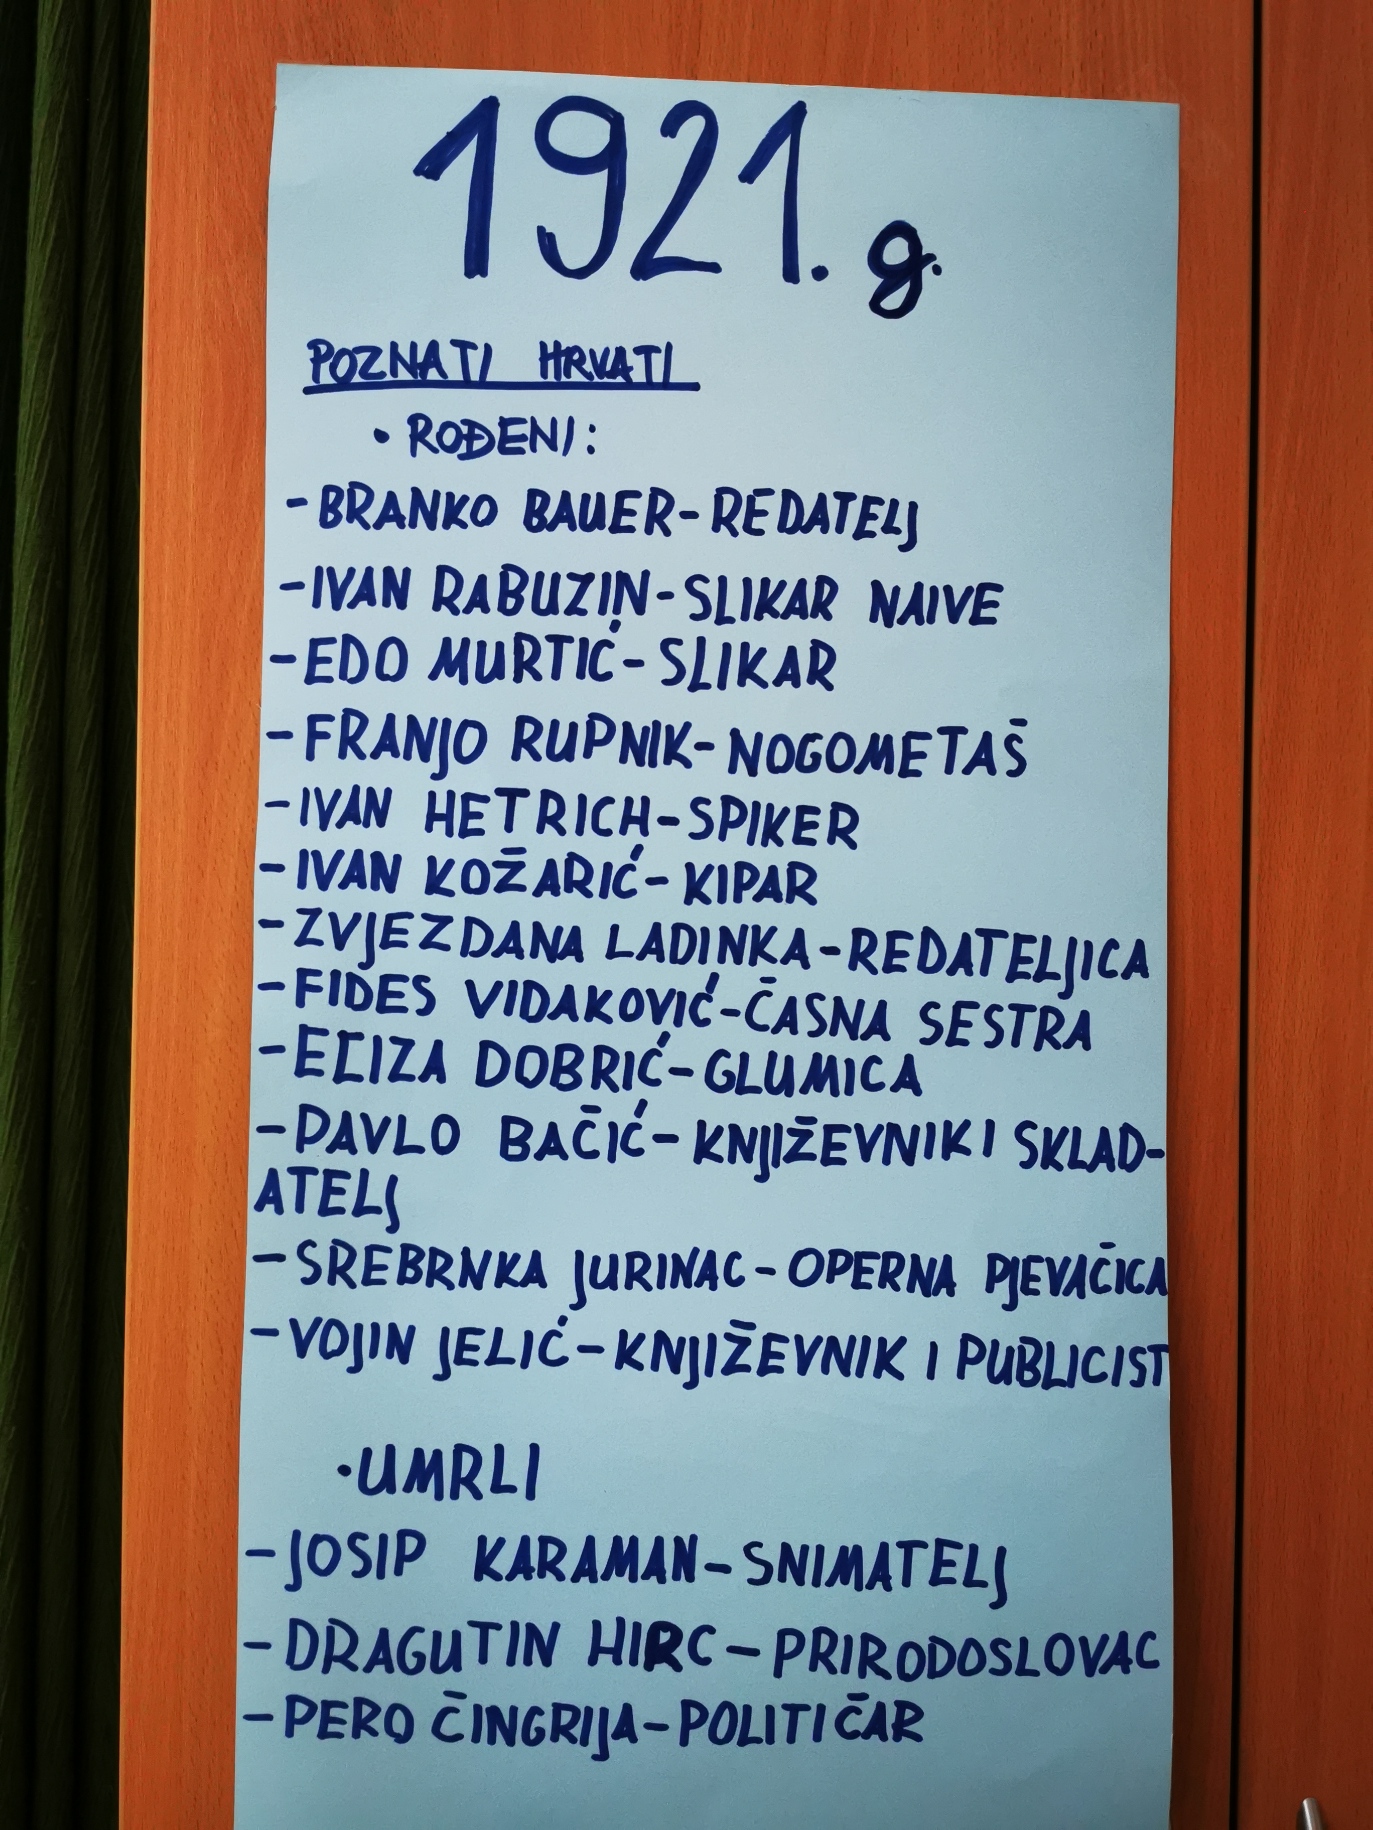 1921. g.
POZNATI HRVATI
• ROĐENI:
-BRANKO BAUER-REDATELJ
-IVAN RABUZIN-SLIKAR NAIVE
-EDO MURTIĆ-SLIKAR
-FRANJO RUPNIK-NOGOMETAŠ
-IVAN HETRICH-SPIKER
-IVAN KOŽARIĆ-KIPAR
-ZVJEZDANA LADINKA-REDATELJICA
-FIDES VIDAKOVIĆ-ČASNA SESTRA
-ELIZA DOBRIĆ-GLUMICA
-PAVLO BAČIĆ-KNJIŽEVNIK I SKLAD-
ATELJ
-SREBRNKA JURINAC-OPERNA PJEVAČICA
-VOJIN JELIĆ-KNJIŽEVNIK I PUBLICIST
•UMRLI
-JOSIP KARAMAN-SNIMATELJ
-DRAGUTIN HIRC-PRIRODOSLOVAC
-PERO ČINGRIJA-POLITIČAR